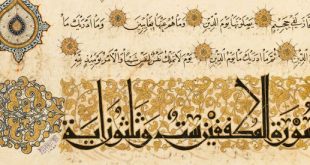 لفي جحيم يصلونها يوم الدين وما هم عنها بغائبين وما ادريك ما
يوم الدين ثم ما ادريك ما يوم الدين يوم لا تملك نفس لنفس شيئا والامر يومئذ لله
سورة المطففين ست وثلثون اية